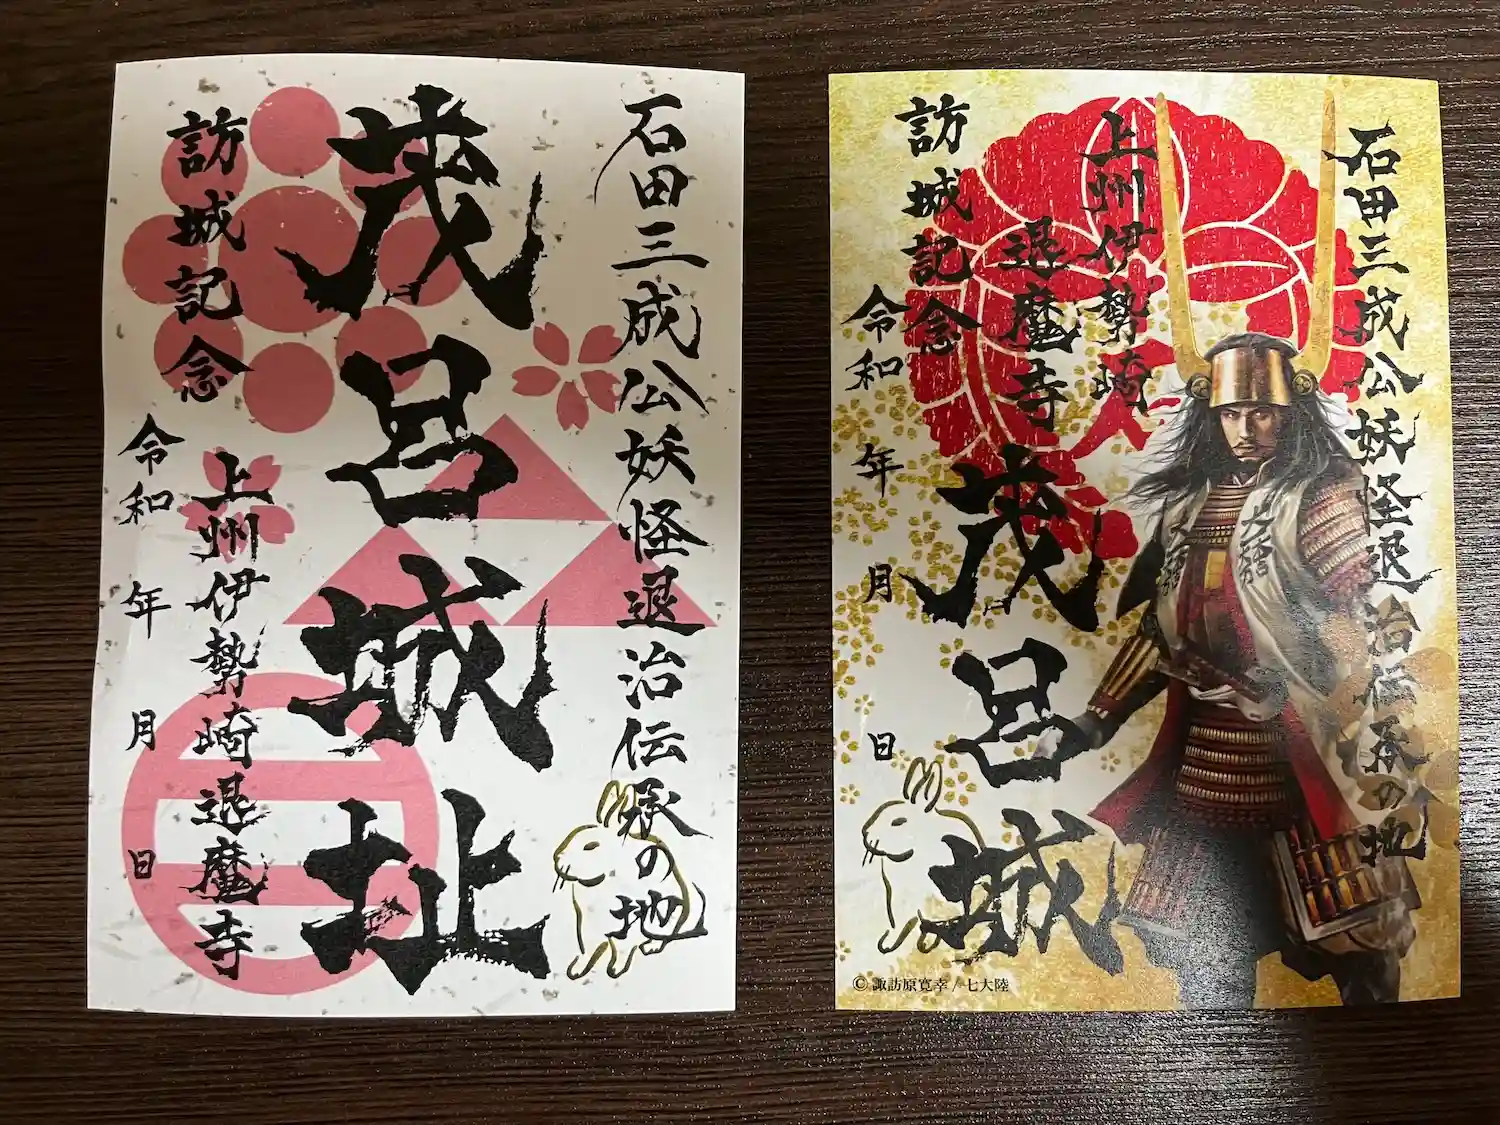 石田三成公妖怪退治伝承の地
茂呂城址
訪城記念
上州伊勢崎退魔寺
令和 年 月 日
石田三成公妖怪退治伝承の地
上州伊勢崎
退魔寺
茂呂城
訪城記念
令和 年 月 日
大一大万大吉
© 諏訪原寛幸 / 七大陸